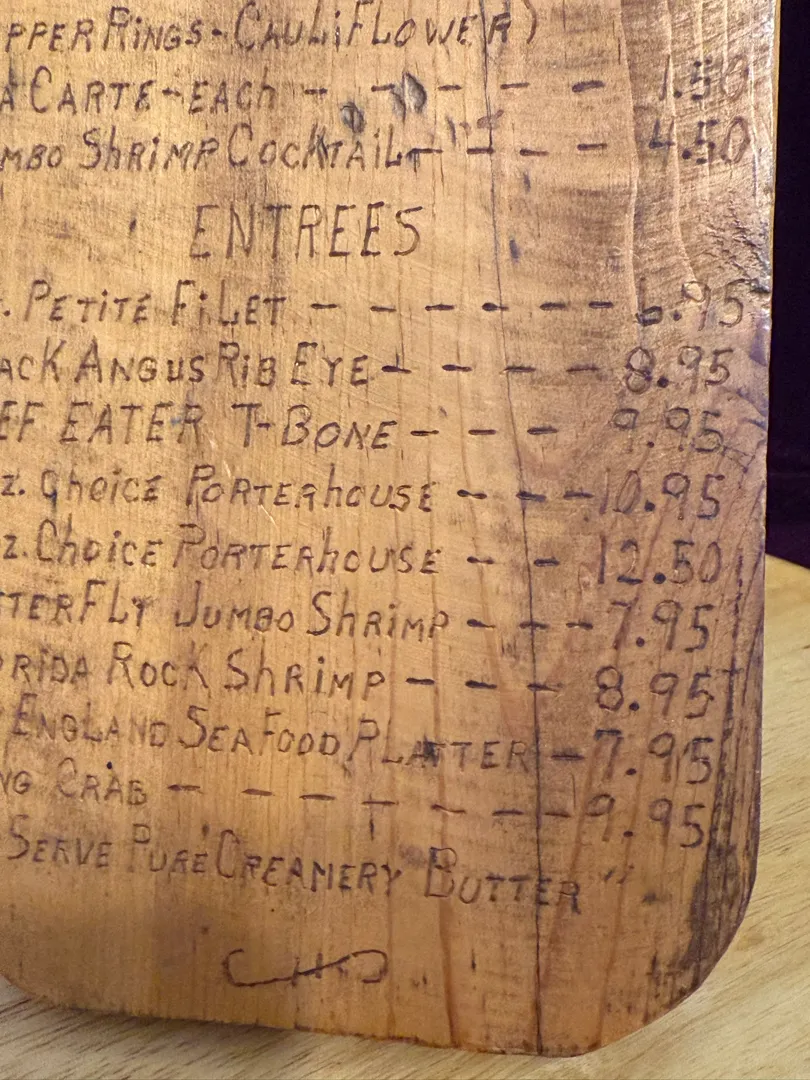 PPER RINGS - CAULIFLOWER)
A CARTE - EACH - - - - - 1.50
MBO SHRIMP COCKTAIL - - - - 4.50
ENTREES
. PETITE FILET - - - - - - 6.95
ACK ANGUS RIB EYE - - - - - 8.95
EF EATER T-BONE - - - 9.95
Z. CHOICE PORTERHOUSE - - - 10.95
Z. CHOICE PORTERHOUSE - - 12.50
TTERFLY JUMBO SHRIMP - - - 7.95
ORIDA ROCK SHRIMP - - - 8.95
ENGLAND SEAFOOD PLATTER - 7.95
NG CRAB - - - - - - - 9.95
SERVE PURE CREAMERY BUTTER"